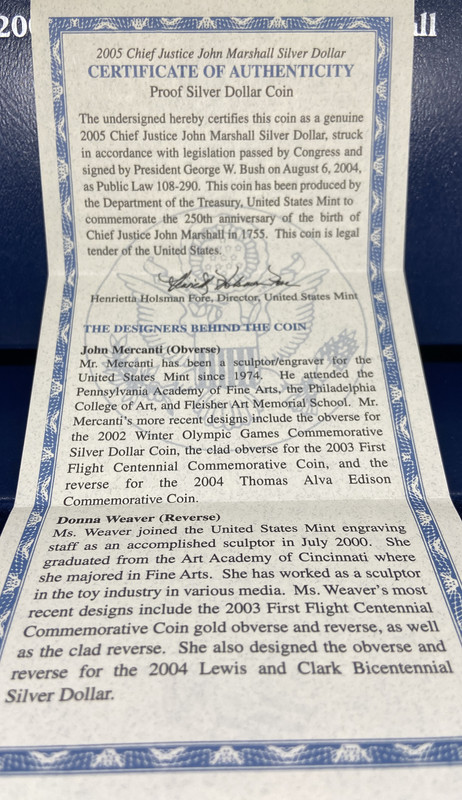 200
all
2005 Chief Justice John Marshall Silver Dollar
CERTIFICATE OF AUTHENTICITY
Proof Silver Dollar Coin
The undersigned hereby certifies this coin as a genuine
2005 Chief Justice John Marshall Silver Dollar, struck
in accordance with legislation passed by Congress and
signed by President George W. Bush on August 6, 2004,
as Public Law 108-290. This coin has been produced by
the Department of the Treasury, United States Mint to
commemorate the 250th anniversary of the birth of
Chief Justice John Marshall in 1755. This coin is legal
tender of the United States.
Henrietta Holsman Fore, Director, United States Mint
THE DESIGNERS BEHIND THE COIN
John Mercanti (Obverse)
Mr. Mercanti has been a sculptor/engraver for the
United States Mint since 1974. He attended the
Pennsylvania Academy of Fine Arts, the Philadelphia
College of Art, and Fleisher Art Memorial School. Mr.
Mercanti's more recent designs include the obverse for
the 2002 Winter Olympic Games Commemorative
Silver Dollar Coin, the clad obverse for the 2003 First
Flight Centennial Commemorative Coin, and the
reverse for the 2004 Thomas Alva Edison
Commemorative Coin.
Donna Weaver (Reverse)
Ms. Weaver joined the United States Mint engraving
staff as an accomplished sculptor in July 2000. She
graduated from the Art Academy of Cincinnati where
she majored in Fine Arts. She has worked as a sculptor
in the toy industry in various media. Ms. Weaver's most
recent designs include the 2003 First Flight Centennial
Commemorative Coin gold obverse and reverse, as well
as the clad reverse. She also designed the obverse and
reverse for the 2004 Lewis and Clark Bicentennial
Silver Dollar.